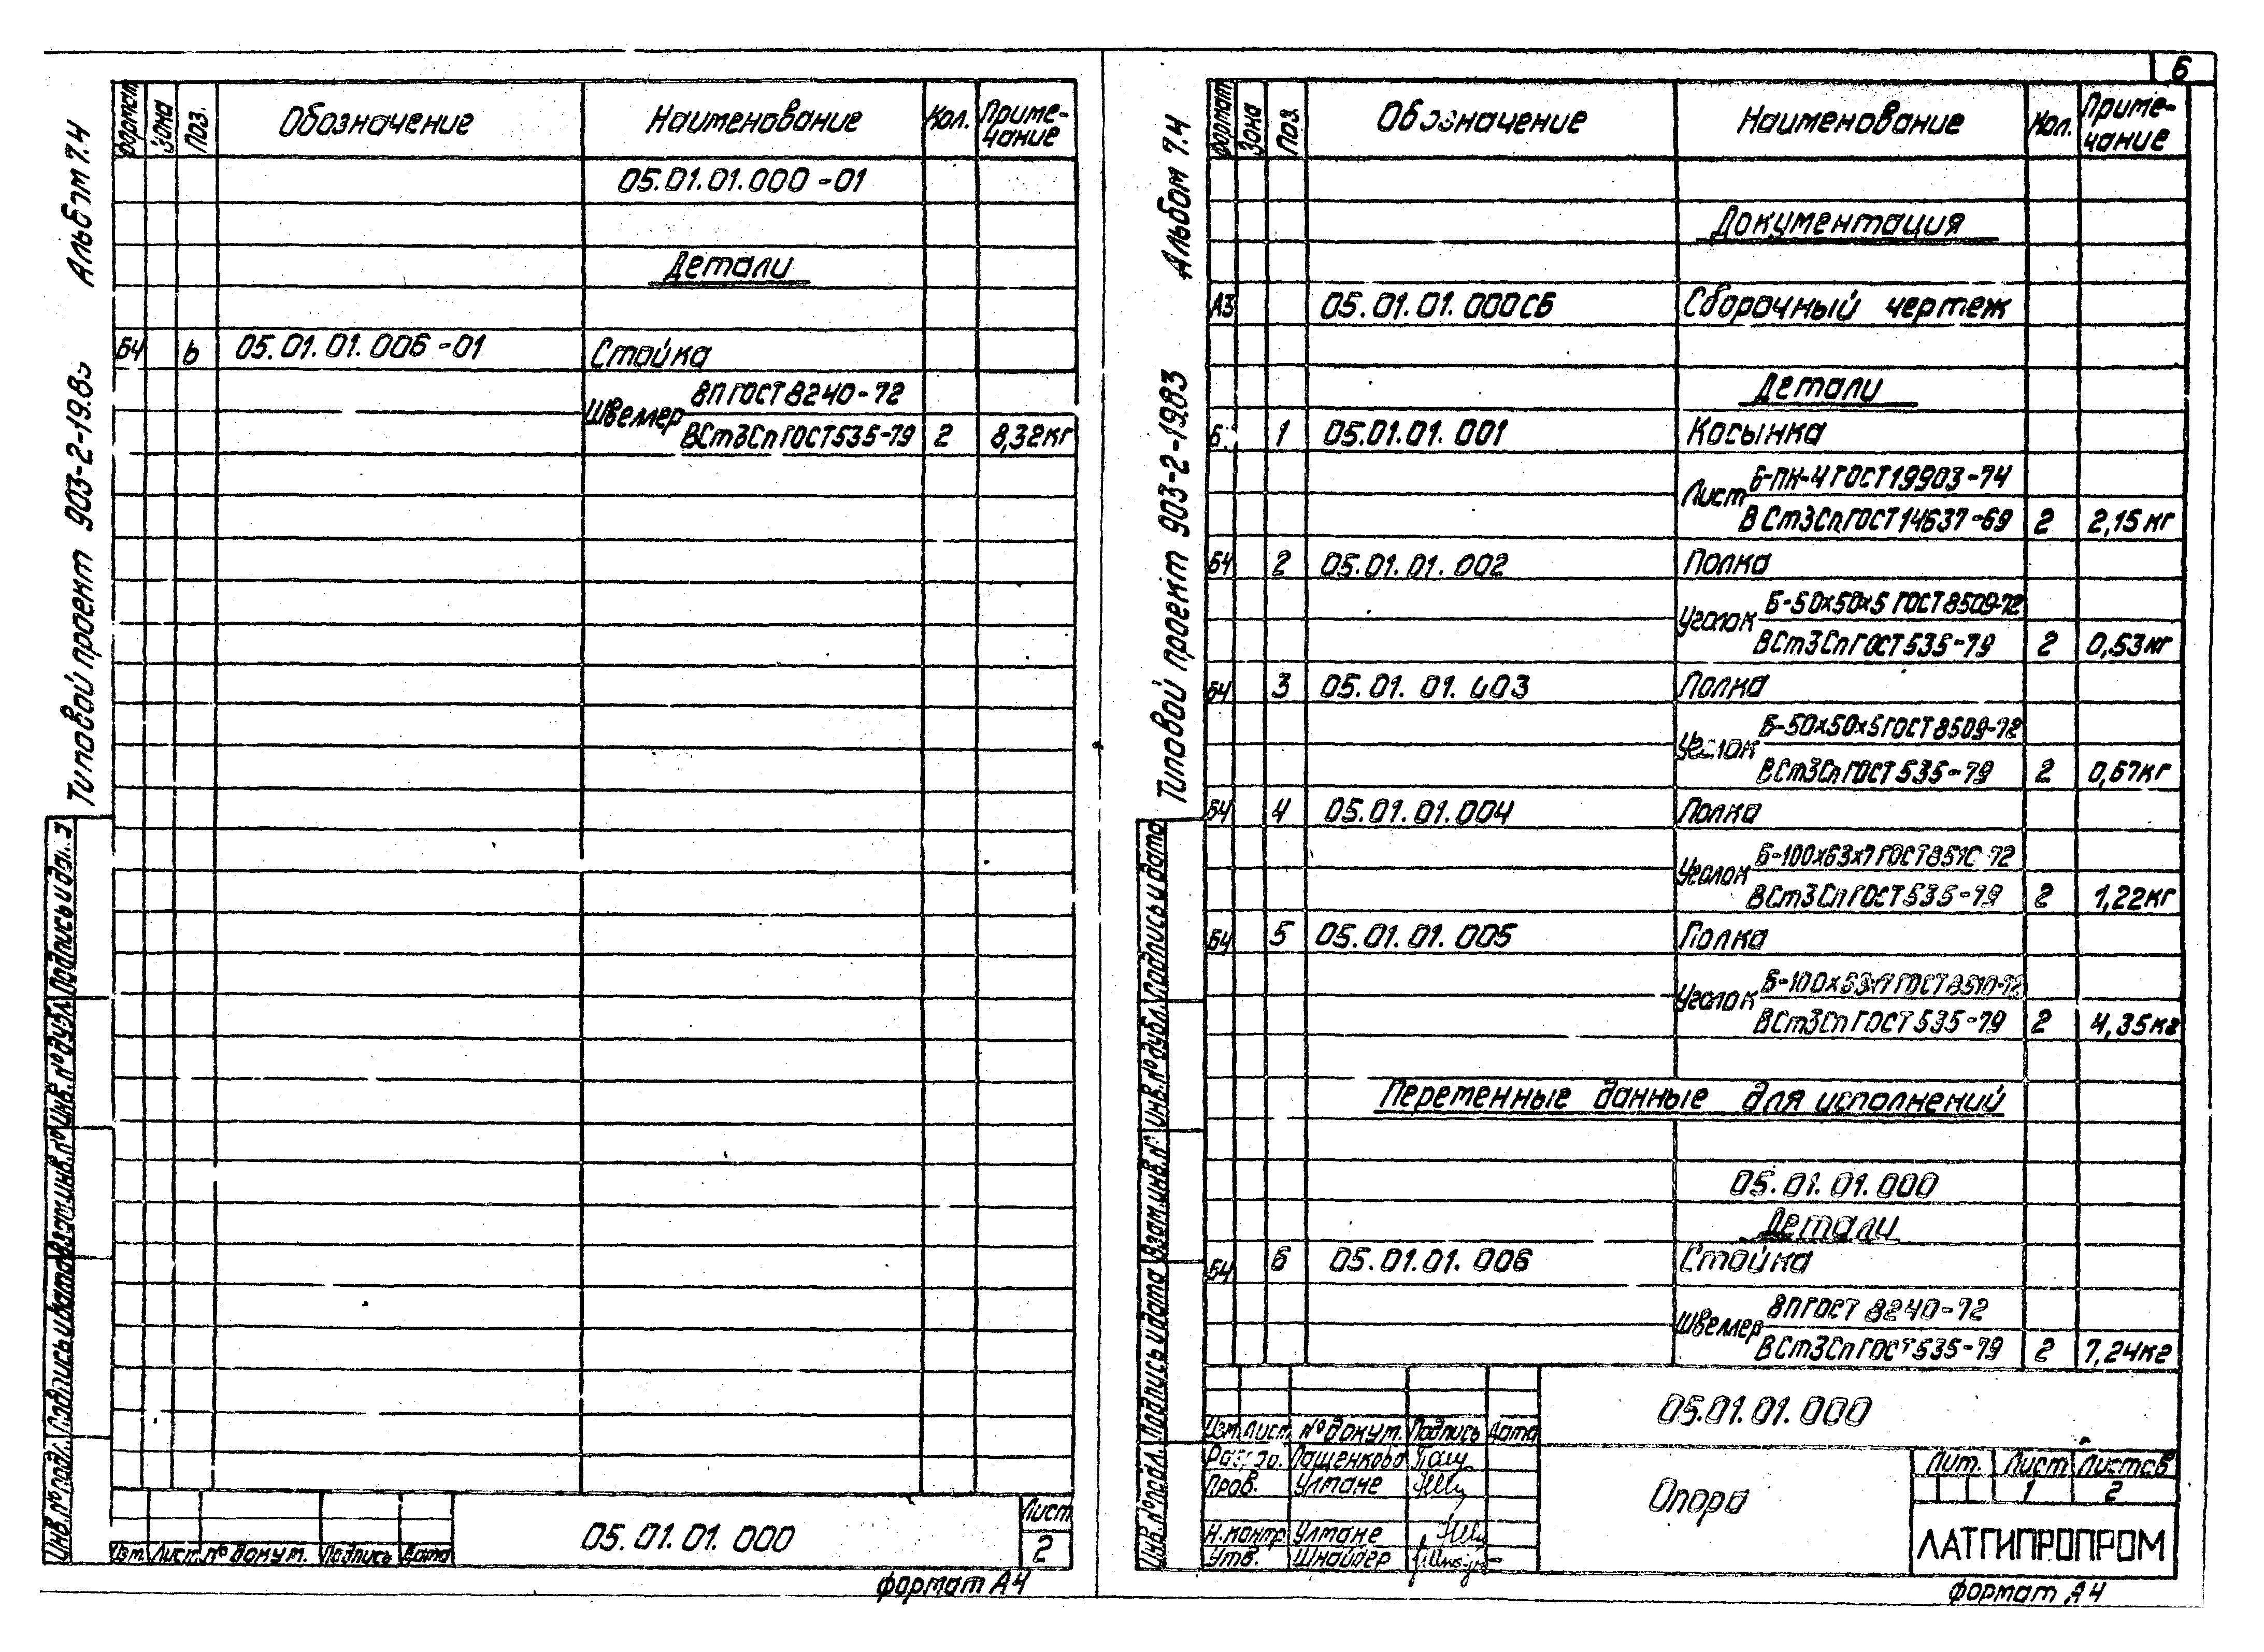 Альбом 7.4
Типовой проект 903-2-19.83
Формат Зона Поз. Обозначение Наименование Кол. Приме-
чание
05.01.01.000-01
Детали
Б4 6 05.01.01.006-01 Стойка
Швеллер 8П ГОСТ 8240-72
ВСт3Сп ГОСТ 535-79 2 8,32кг
Подпись и дата
Инв.№дубл.
Взам.инв.№
Подпись и дата
Инв.№подл.
Изм. Лист. № докум. Подпись Дата
05.01.01.000
Лист
2
Формат А4
6
Альбом 7.4
Типовой проект 903-2-19.83
Формат Зона Поз. Обозначение Наименование Кол. Приме-
чание
Документация
А3 05.01.01.000СБ Сборочный чертеж
Детали
Б 1 05.01.01.001 Косынка
Лист Б-ПН-4 ГОСТ 19903-74
ВСт3Сп ГОСТ 14637-69 2 2,15кг
Б4 2 05.01.01.002 Полка
Уголок Б-50х50х5 ГОСТ 8509-72
ВСт3Сп ГОСТ 535-79 2 0,53кг
Б4 3 05.01.01.003 Полка
Уголок Б-50х50х5 ГОСТ 8509-72
ВСт3Сп ГОСТ 535-79 2 0,67кг
Б4 4 05.01.01.004 Полка
Уголок Б-100х63х7 ГОСТ 8510-72
ВСт3Сп ГОСТ 535-79 2 1,22кг
Б4 5 05.01.01.005 Полка
Уголок Б-100х63х7 ГОСТ 8510-72
ВСт3Сп ГОСТ 535-79 2 4,35кг
Переменные данные для исполнений
05.01.01.000
Детали
Б4 6 05.01.01.006 Стойка
Швеллер 8П ГОСТ 8240-72
ВСт3Сп ГОСТ 535-79 2 7,24кг
Подпись и дата
Инв.№дубл.
Взам.инв.№
Подпись и дата
Инв.№подл.
Изм. Лист. № докум. Подпись Дата
Разраб. Пащенкова
Пров. Улмане
Н.контр. Улмане
Утв. Шнайдер
05.01.01.000
Опора
Лит. Лист Листов
1 2
ЛАТГИПРОПРОМ
Формат А4